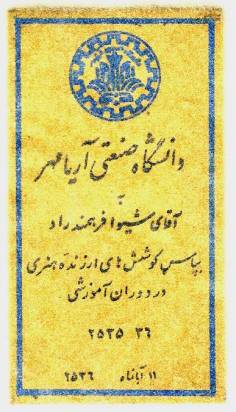 دانشگاه صنعتی آریامهر
به
آقای شیوا فرهمند راد
بپاس کوشش های ارزنده هنری
در دوران آموزشی
۳۶ ۲۵۳۵
۱۱ آبانماه ۲۵۳۶